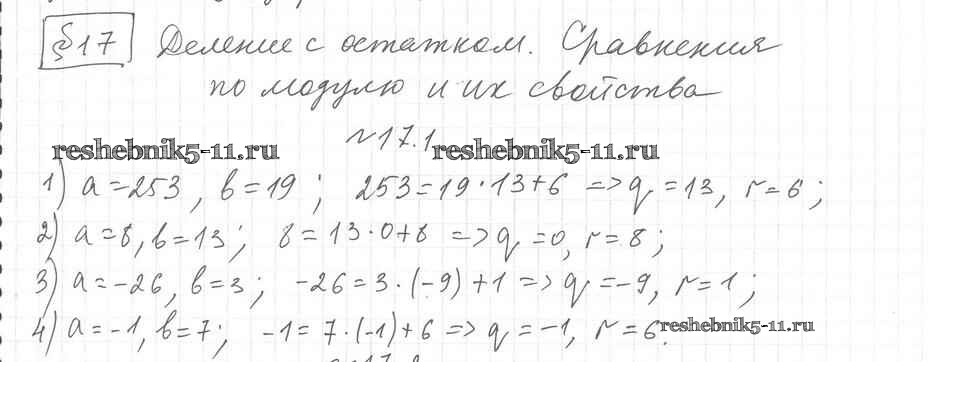 §17 Деление с остатком. Сравнения
по модулю и их свойства
№17.1
reshebnik5-11.ru reshebnik5-11.ru
1) a=253, b=19; 253=19·13+6 => q=13, r=6;
2) a=8, b=13; 8=13·0+8 => q=0, r=8;
3) a=-26, b=3; -26=3·(-9)+1 => q=-9, r=1;
4) a=-1, b=7; -1=7·(-1)+6 => q=-1, r=6. reshebnik5-11.ru